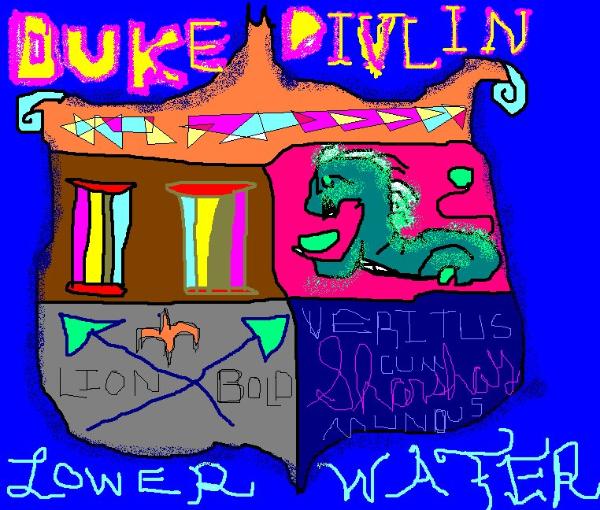 DUKE DIVLIN
LION BOLD
VERITUS
CUM
Sharshay
MUNDUS
LOWER WATER